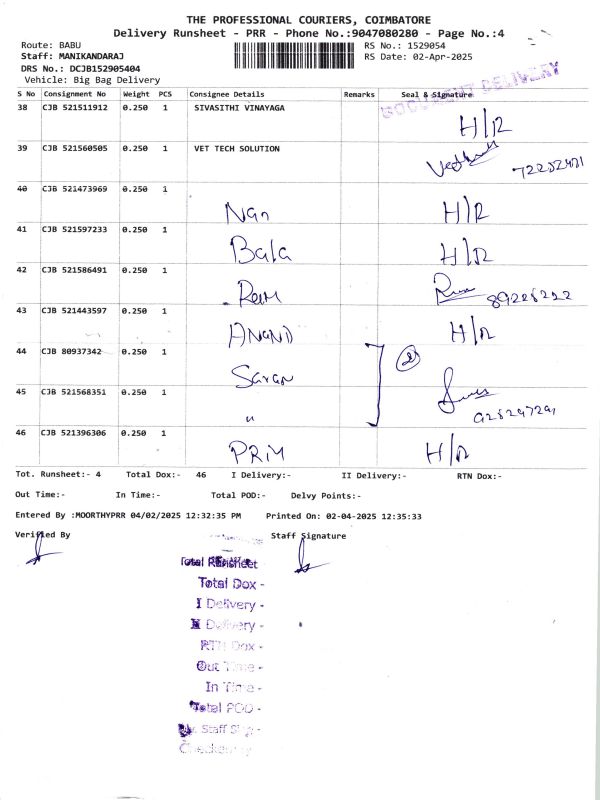 THE PROFESSIONAL COURIERS, COIMBATORE
Delivery Runsheet - PRR - Phone No.:9047080280 - Page No.:4
Route: BABU
RS No.: 1529054
Staff: MANIKANDARAJ
RS Date: 02-Apr-2025
DRS No.: DCJB152905404
Vehicle: Big Bag Delivery
S No Consignment No Weight PCS Consignee Details Remarks Seal & Signature
DOCUMENT DELIVERY
38 CJB 521511912 0.250 1 SIVASITHI VINAYAGA H/R
39 CJB 521560505 0.250 1 VET TECH SOLUTION
40 CJB 521473969 0.250 1 Nan H/R
41 CJB 521597233 0.250 1 Bala H/R
42 CJB 521586491 0.250 1 Ram
43 CJB 521443597 0.250 1 ANAND H/R
44 CJB 80937342 0.250 1 Saran 2
45 CJB 521568351 0.250 1 "
46 CJB 521396306 0.250 1 PRIM H/R
Tot. Runsheet:- 4 Total Dox:- 46 I Delivery:- II Delivery:- RTN Dox:-
Out Time:- In Time:- Total POD:- Delvy Points:-
Entered By :MOORTHYPRR 04/02/2025 12:32:35 PM Printed On: 02-04-2025 12:35:33
Verified By Staff Signature
Total Runsheet
Total Dox -
I Delivery -
II Delivery -
RTN Dox -
Out Time -
In Time -
Total POD -
Staff Sing -